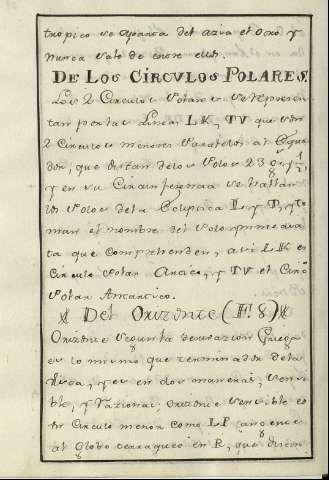 tropico se aparta del otro el Orbe y
nunca sale de entre ellos.
DE LOS CÍRCULOS POLARES.
Los 2 Circulos Polares se represen
tan por las Lineas LK, TV que son
2 Circulos menores Paralelos al Equa
dor, que distan de los Polos 23 gs y 1/2
y en su Circunferencia se hallan
los Polos de la Ecliptica L y T, y to
man el nombre del Polo
ta que comprehenden, asi LK es
Circulo Polar Arctico, y TV el Circo
Polar Antarctico.
Del Orizonte (F. 8)
Orizonte segun la derivazion Griega
es lo mismo que terminador de la
y es en dos maneras, sensi
ble, y Racional, Orizonte sensible es
Circulo menor como LP tangente
al Globo terraqueo en R, que